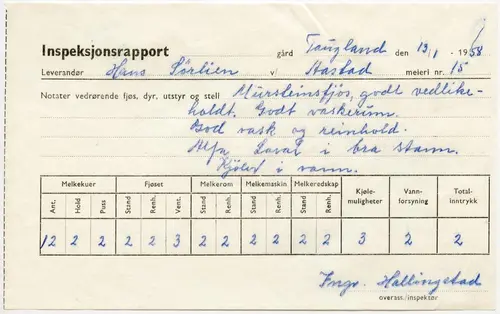 Inspeksjonsrapport gård Taugland den 13/1 - 1958
Leverandør Hans Sørlien v/ Stastad meieri nr. 15
Notater vedrørende fjøs, dyr, utstyr og stell Mursteinsfjøs, godt vedlike-
holdt. Godt vaskerum.
God vask og reinhold.
Alfa Laval i bra stann.
Kjøler i vann.
Melkekuer Fjøset Melkerom Melkemaskin. Melkeredskap Kjøle-muligheter Vann-forsyning Total-inntrykk
Ant. Hold Puss Stand Renh. Vent. Stand Renh. Stand Renh. Stand Renh.
12 2 2 2 2 3 2 2 2 2 2 2 3 2 2
Ingv. Hallingstad
overass./inspektør